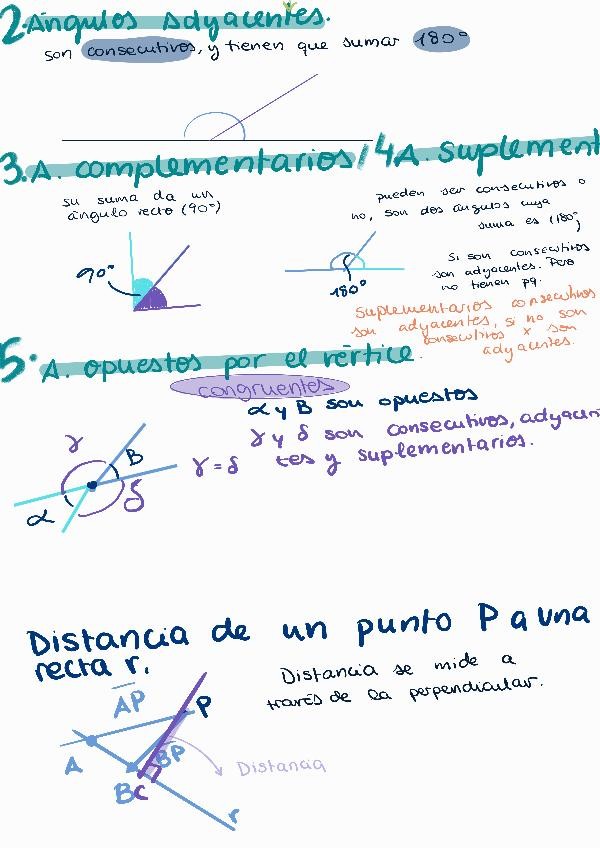 2. Ángulos adyacentes.
son consecutivos, y tienen que sumar 180°
3. A. complementarios/4 A. suplement
su suma da un
ángulo recto (90°)
90°
pueden ser consecutivos o
no, son dos ángulos cuya
suma es (180°)
180°
Si son consecutivos
son adyacentes. Pero
no tienen pq.
Suplementarios consecutivos
son adyacentes, si no son
consecutivos x son
adyacentes.
5. A. opuestos por el vértice.
congruentes
α y B son opuestos
γ y δ son consecutivos, adyacen
tes y suplementarios.
γ = δ
γ
B
α
δ
Distancia de un punto P a una
recta r.
Distancia se mide a
través de la perpendicular.
AP
P
A
BP
Distancia
BC
r